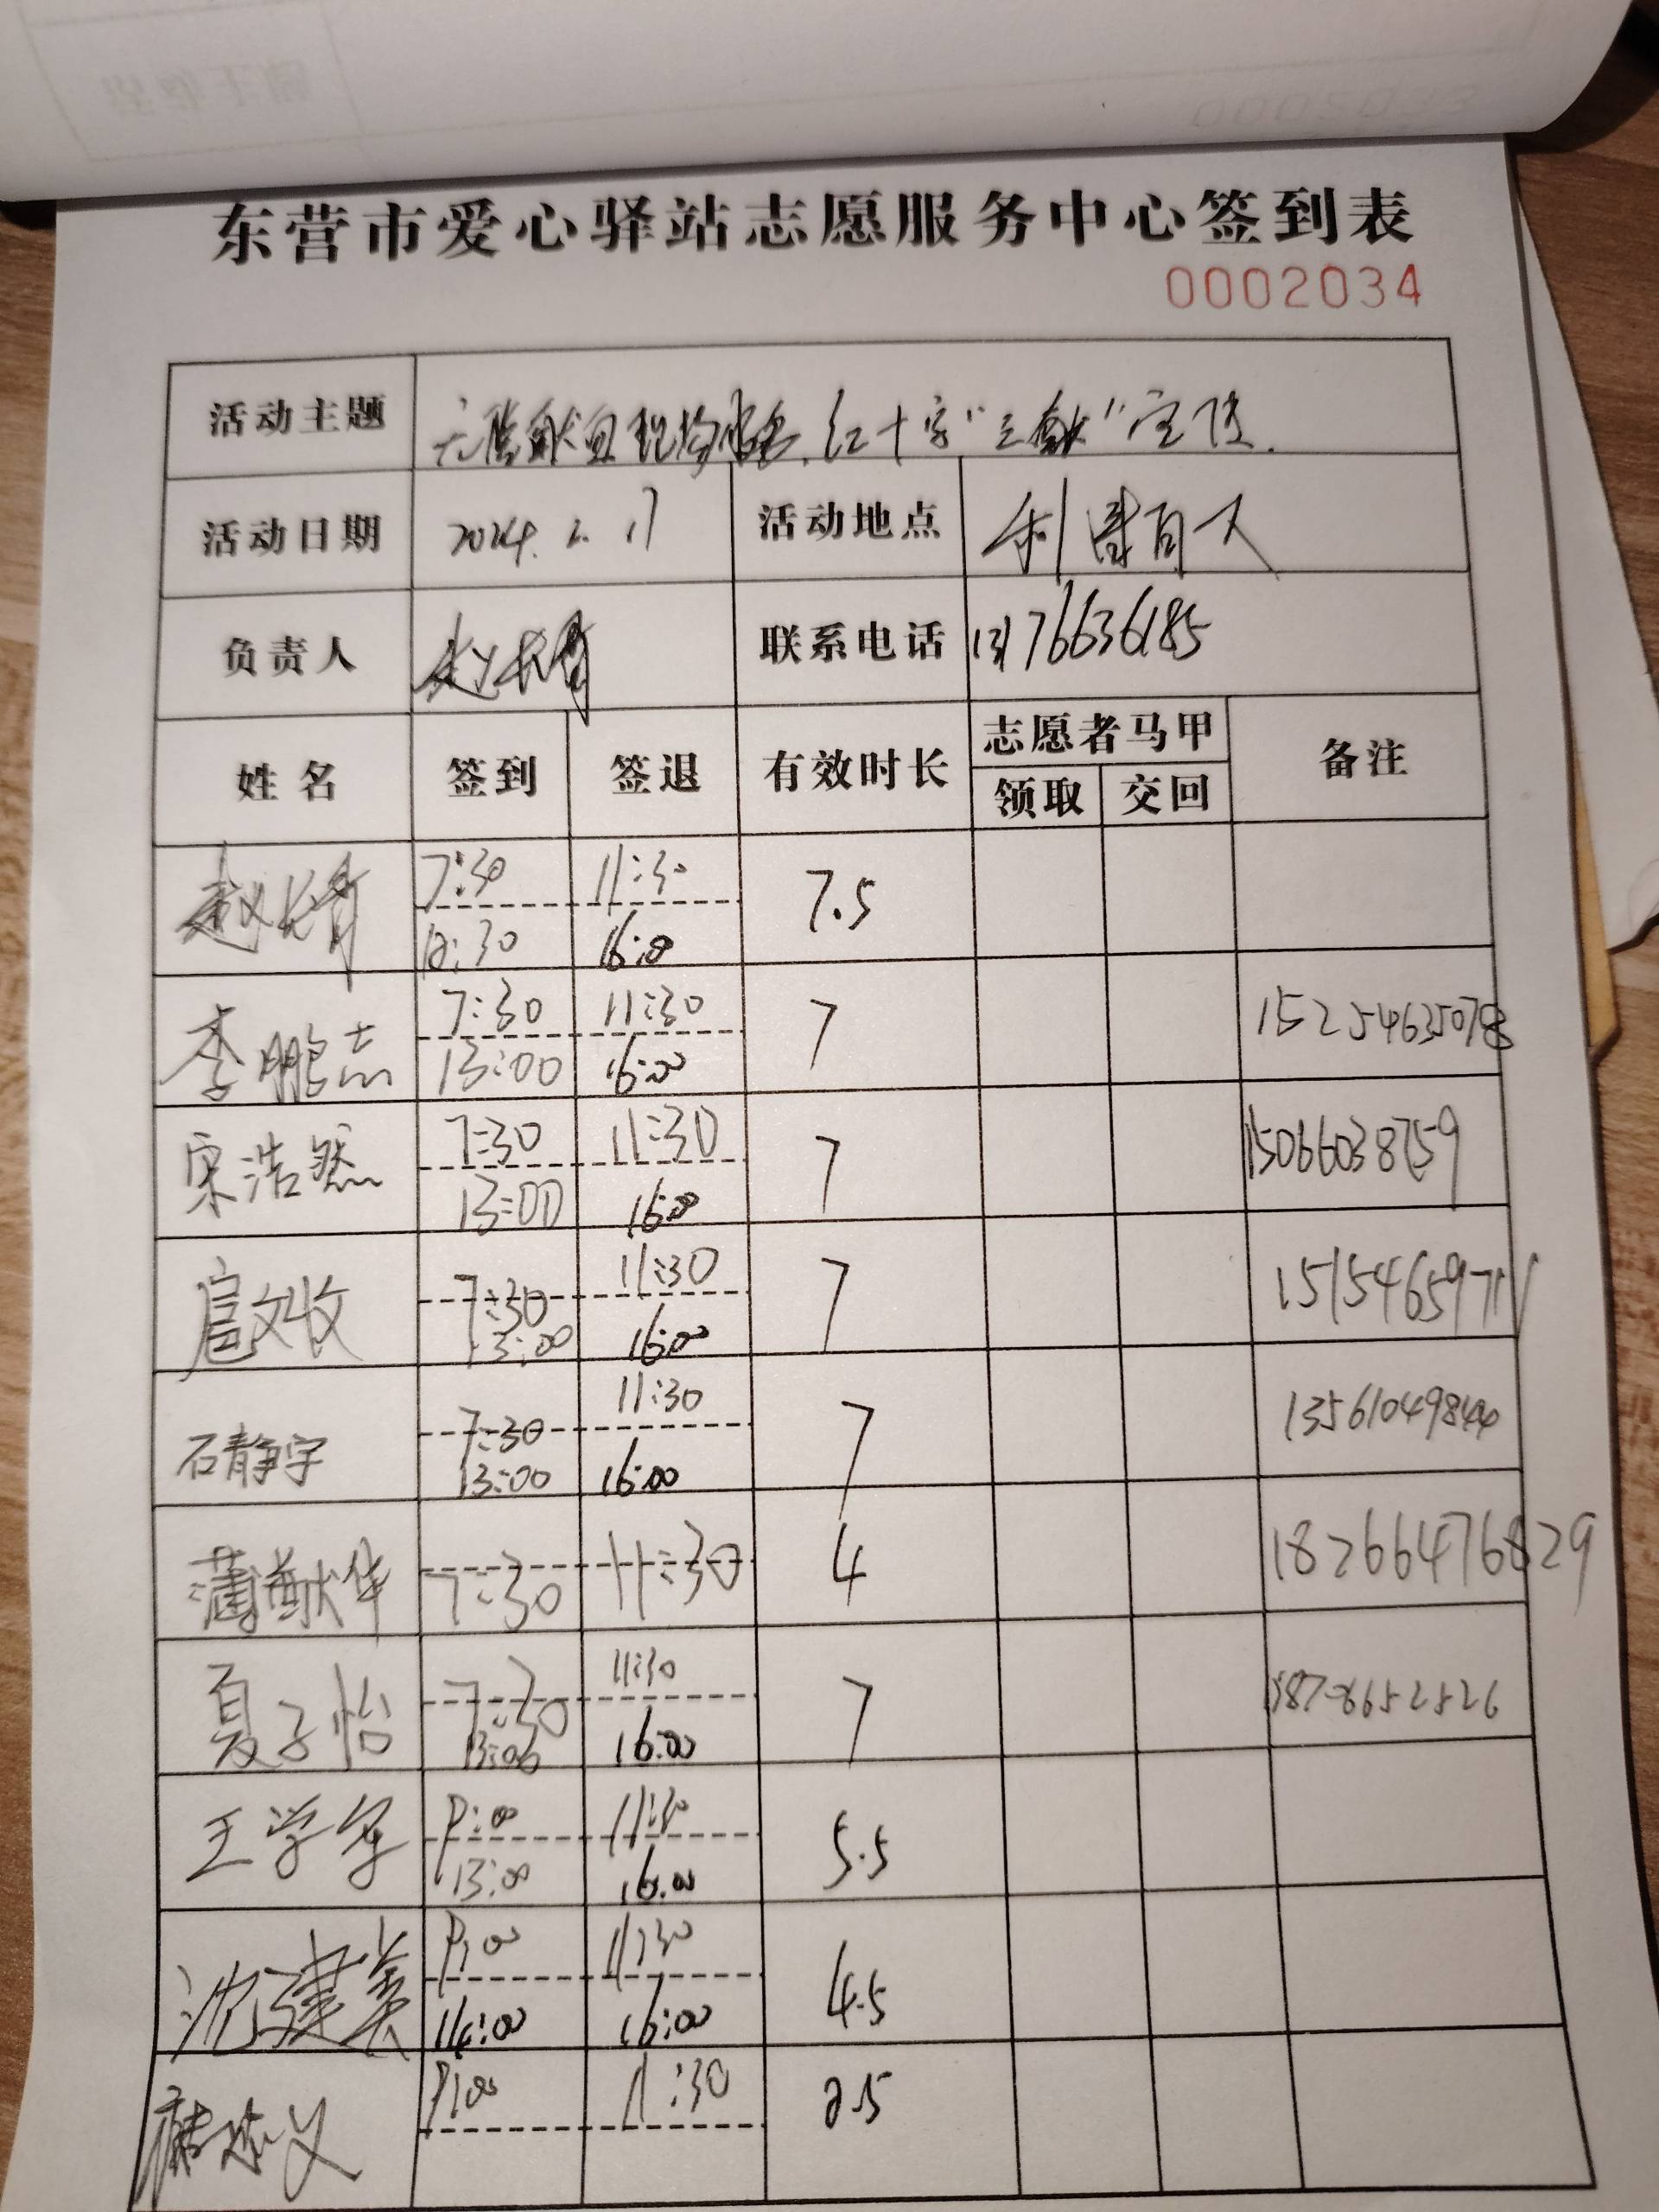 东营市爱心驿站志愿服务中心签到表
0002034
活动主题 无偿献血现场服务.红十字"三献"宣传.
活动日期 2024.2.17 活动地点 利群百大
负责人 赵长青 联系电话 13176636185
姓名 签到 签退 有效时长 志愿者马甲 备注
领取 交回
赵长青 7:30 11:30 7.5
12:30 16:00
李鹏志 7:30 11:30 7 15254635078
13:00 16:00
宋浩然 7:30 11:30 7 15066038759
13:00 16:00
扈文收 7:30 11:30 7
13:00 16:00
石静宇 7:30 11:30 7 13561049844
13:00 16:00
蒲献华 7:30 11:30 4 18266476829
夏子怡 7:30 11:30 7
13:00 16:00
王学军 9:00 11:30 5.5
13:00 16:00
沈建美 9:00 11:30 4.5
14:00 16:00
9:00 11:30 2.5